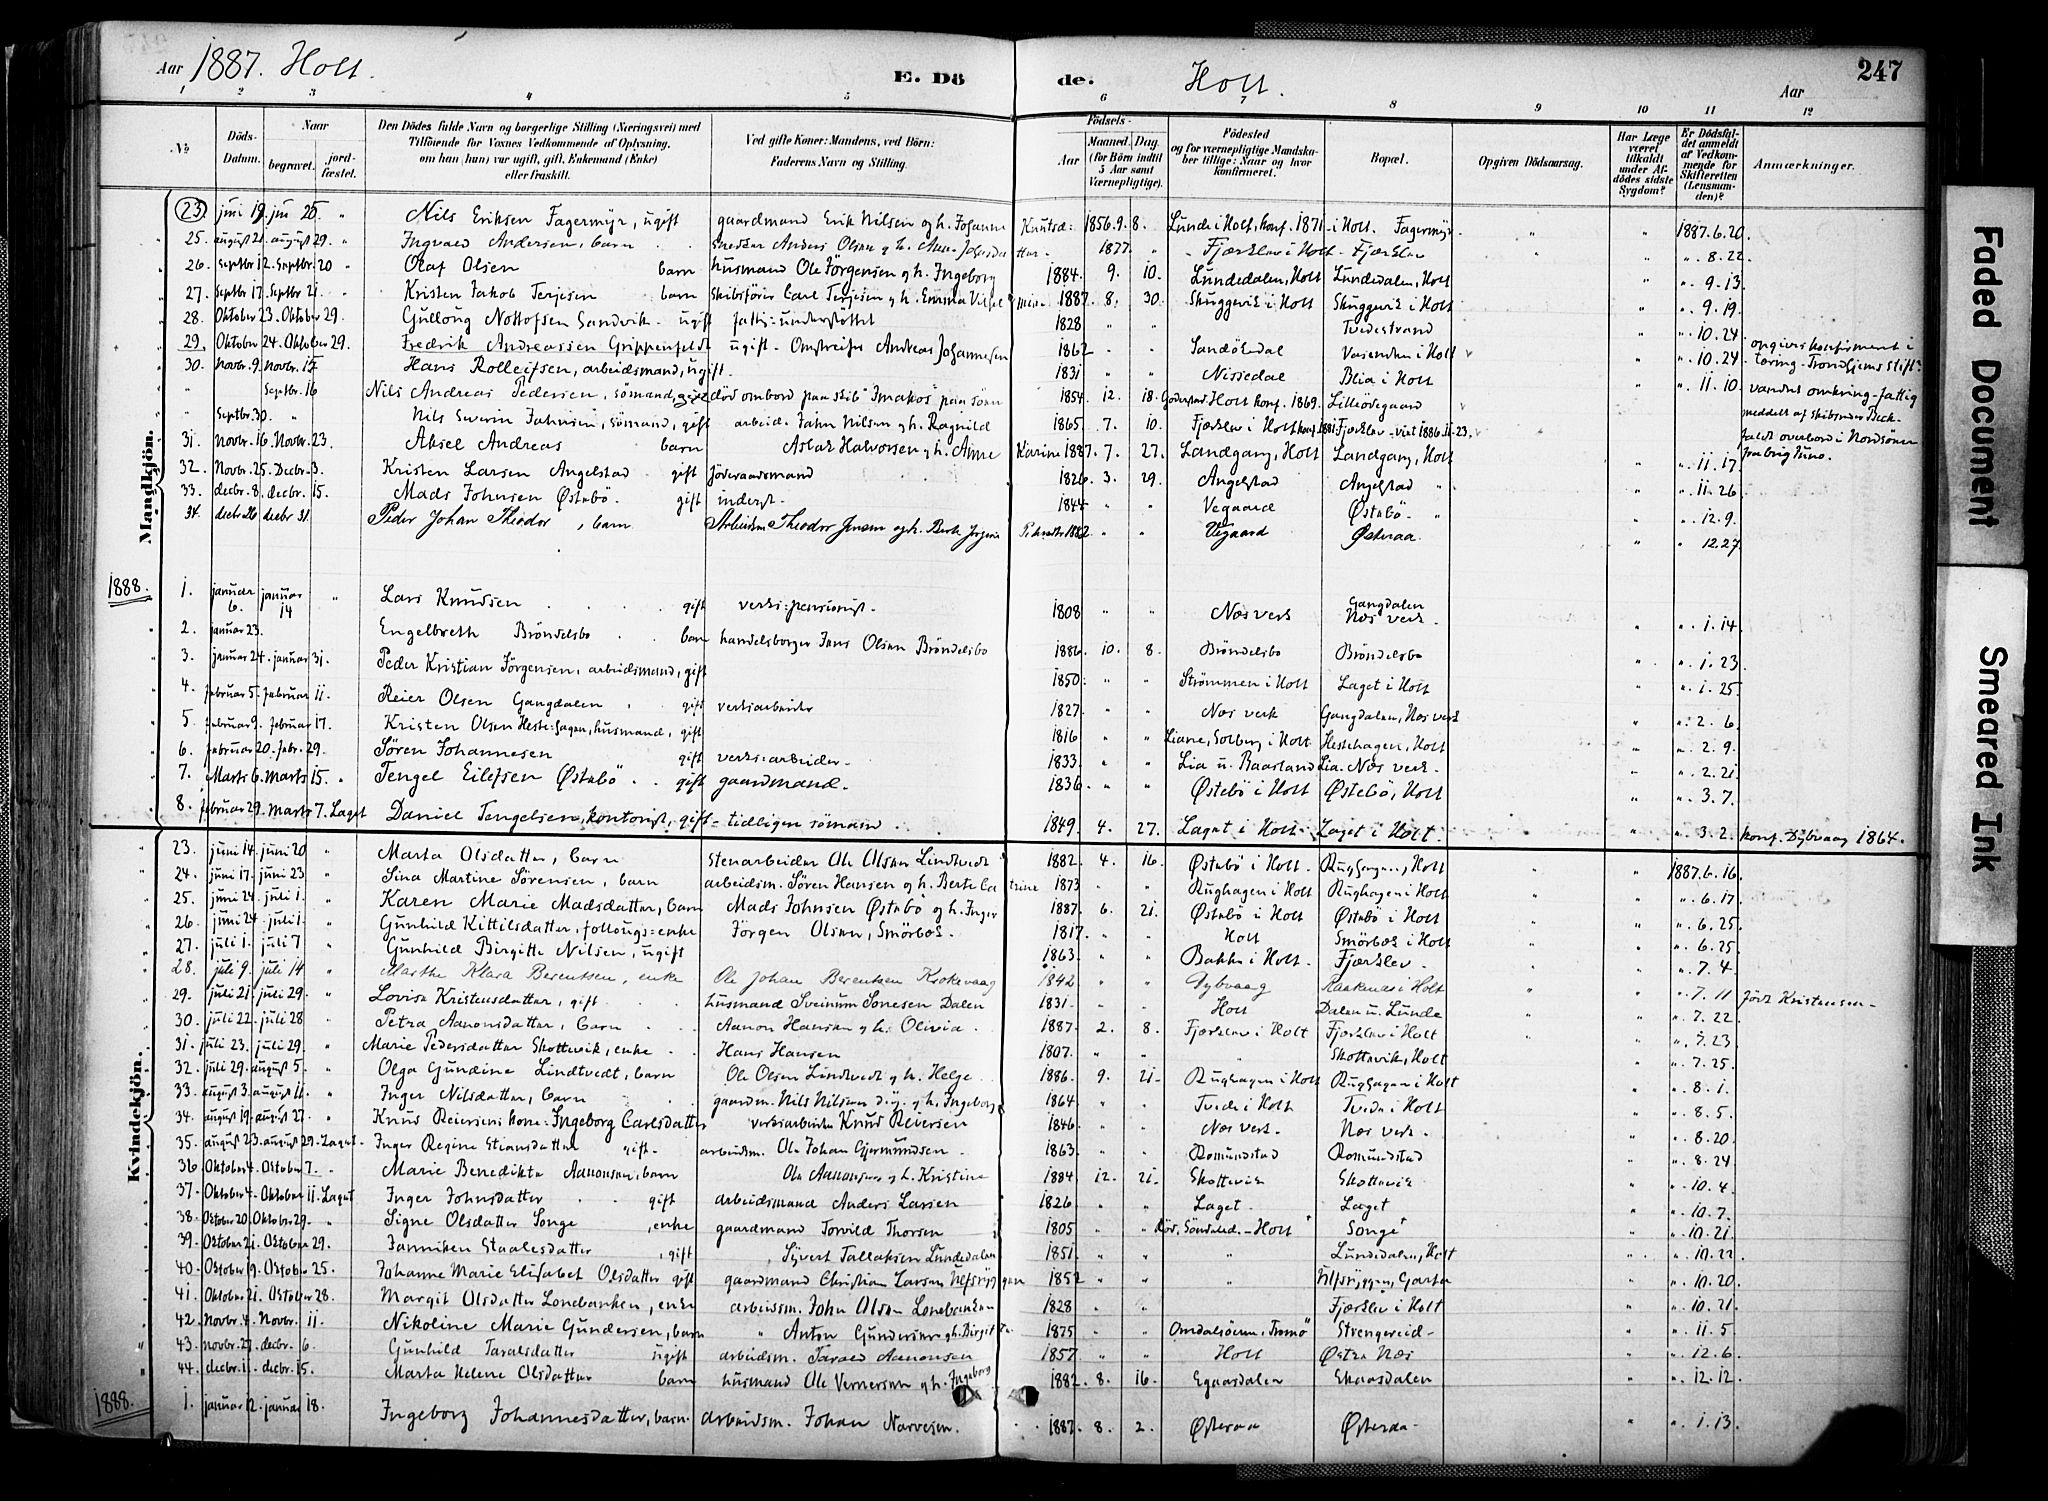 Aar 1887. Holt. E. Dö de. Holt. Aar 247
1 2 3 4 5 6 7 8 9 10 11 12
No. Döds-Datum. Naar begravet. jordfæstet. Den Dödes fulde Navn og borgerlige Stilling (Næringsvei) med Tilföiende for Voxnes Vedkommende af Oplysning, om han (hun) var ugift, gift, Enkemand (Enke) eller fraskilt. Ved gifte Koner: Mandens, ved Börn: Faderens Navn og Stilling. Födsels- Aar Maaned. Dag. (for Börn indtil 5 Aar samt Værnepligtige). Födested og for værnepligtige Mandskaber tillige: Naar og hvor konfirmeret. Bopæl. Opgiven Dödsaarsag. Har Læge været tilkaldt under Afdödes sidste Sygdom? Er Dödsfaldet anmeldt af Vedkommende for Skifteretten (Lensmanden)? Anmærkninger.
Mandkjön.
23. juni 19. juni 25 " Nils Eriksen Fagermyr, ugift gaardmand Erik Nilsen og h. Johanne Knutsd: 1856. 9. 8. Lunde i Holt, konf. 1871 - i Holt. Fagermyr " " 1887. 6. 20.
25. august 21. august 29. " Ingvald Andersen, barn Anders Olsen og h. 1877. " Fjærklev i Holt - Fjærklev " " 8. 22.
26. septbr 12. septbr. 20 " Olaf Olsen barn husmand Ole Jörgensen og h. Ingeborg 1884. 9. 10. Lundedalen, Holt Lundedalen, Holt " " 9. 13.
27. Septbr 17. Septbr 21. " Kristen Jakob Terjesen barn Skibsförer Carl Terjesen og h. Emma Vilhelmine 1887. 8. 30. Skuggevik i Holt Skuggevik i Holt " " 9. 19.
28. Oktober 23. Oktober 29. Gulloug Nottofsen Sandvik - ugift fattig-understöttet 1828 " " Tvedestrand " " 10. 24.
29. Oktobr 24. Oktober 29. Fredrik Andreassen Grippenfeldt ugift - Omstreifer Andreas Johannesen 1862 " " Vasenden i Holt " " 10. 24. opgives konfirmeret i
30. Novbr. 9. Novbr. 15 Hans Rolleifsen, arbeidsmand, ugift. 1831 " " Nissedal Blia i Holt " " 11. 10. - Trondhjems Stift?
" Septbr. 16 Nils Andreas Pedersen, sömand, död ombord paa skib "Imakos" paa sjöen 1854. 12. 18. Holt konf. 1869. vandret omkring - fattig
" Septbr 30. " Nils Severin Jahnsen, sömand, gift arbeid. Jahn Nilsen og h. Ragnild 1865. 7. 10. Fjærklev i Holt konf. 1881 Fjærklev - viet 1886. 11. 23. meddelt af skibsreder Beck
31. Novbr. 16. Novbr. 23. Aksel Andreas barn Aslak Halvorsen og h. Anne Karine 1887. 7. 27. Landgang, Holt Landgang, Holt " " 11. 17. faldt overbord i Nordsöen
32. Novbr. 25. Decbr. 3. Kristen Larsen Angelstad gift föderaadsmand 1826. 3. 29. Angelstad Angelstad " " 11. 26 fra brig Juno.
33. decbr. 8. decbr. 15. Mads Johnsen Østebö gift inderst - 1844 " " Vegaard Østebö - " " 12. 9.
34. decbr 26 decbr 31 Peder Johan Theodor, barn Arbeidsm Theodor Jensen og h. Berte 1882 " " Vegaard Østeraa " " 12. 27.
1888. 1. januar 6. januar 14 " Lars Knudsen gift verks-pensionist - 1808 " " Næs verk Gangdalen Næs verk. " " 1. 14.
2. januar 23. Engelbreth Bröndelsbo barn handelsborger Jens Olsen Bröndelsbo 1886. 10. 8. Bröndelsbo Bröndelsbo " " 1. 23.
3. januar 24. januar 31. Peder Kristian Jörgensen, arbeidsmand, gift 1850. " " Strömmen i Holt Laget i Holt " " 1. 25.
4. februar 5. februar 11. Reier Olsen Gangdalen gift verksarbeider 1827. " " Næs verk Gangdalen, Næs verk " " 2. 6
5. februar 9. februar 17. Kristen Olsen Heste-hagen, husmand, gift 1816 " " Liane, Solberg i Holt Hestehagen, Holt " " 2. 9.
6. februar 20. febr. 29. Sören Johannesen gift verks-arbeider - 1833. " " Lia u. Baarland Lia. Næs verk. " " 2. 21.
7. Marts 6. Marts 15. " Tengel Eilefsen Østebö gift gaardmand. 1836. " " Østebö i Holt Østebö, Holt " " 3. 7.
8. februar 29. Marts 7. Laget Daniel Tengelsen, kontorist, gift - tidligen sömand 1849. 4. 27. Laget i Holt - Laget i Holt. " " 3. 2. konf. Dybvaag 1864.
Kvindekjön.
23. juni 14. juni 20 " Marta Olsdatter, barn stenarbeider Ole Olsen Lindtvedt 1882. 4. 16. Østebö i Holt Rughagen, Holt " " 1887. 6. 16.
24. juni 17. juni 23 " Sina Martine Sörensen, barn arbeidsm. Sören Hansen og h. Berte Catrine 1873 " " Rughagen i Holt Rughagen i Holt " " 6. 17.
25. juni 24. juli 1. " Karen Marie Madsdatter, barn Mads Johnsen Østebö og h. Inger 1887. 6. 21. Østebö i Holt Østebö i Holt " " 6. 25.
26. juni 24. juli 1. " Gunhild Kittilsdatter, follougs-enke Jörgen Olsen, Smörbæk. 1817. " " Holt Smörbæk i Holt " " 6. 25.
27. juli 1. juli 7 " Gunhild Birgitte Nilsen, ugift 1863. " " Bakken i Holt. Fjærklev. " " 7. 4.
28. juli 9. juli 14 " Marthe Klara Berentsen, enke Ole Johan Berentsen Krokevaag 1842 " " Dybvaag i Holt " " 7. 11
29. juli 21. juli 29. " Lovise Kristensdatter, gift husmand Sveinum Sonesen Dalen 1831. " " Holt Dalen u. Lunde " " 7. 22. född Kristensen -
30. juli 22. juli 28 " Petra Aanonsdatter, barn Aanon Hansen og h: Olivia. 1887. 2. 8. Fjærklev i Holt Fjærklev i Holt " " 7. 23
31. juli 23. juli 29. " Marie Pedersdatter Skottevik, enke Hans Hansen 1807. " " " Skottevik, Holt " 7. 25.
32. juli 29. august 5. " Olga Gundine Lindtvedt, barn Ole Olsen Lindtvedt og h. Helge 1886. 9. 21. Rughagen i Holt Rughagen i Holt " " 8. 1.
33. august 3. august 11. " Inger Nilsdatter, barn gaardm. Nils Nilsen og h. Ingeborg 1864 " " Tvede i Holt Tvede i Holt " " 8. 5.
34. august 19. august 27. " Knud Reiersens kone: Ingeborg Carlsdatter verksarbeider Knud Reiersen 1846. " " Næs verk. Næs verk. " " 8. 20.
35. august 23. august 29. Laget. Inger Regine Stiansdatter gift. arbeidsm. Ole Johan Gjermundsen 1863. " " Romundstad Romundstad " " 8. 24
36 Oktober 4. Oktober 7. " Marie Benedikte Aanonsen, barn Ole Aanonsen og h. Kristine 1884 12. 21. Skottevik Skottevik " " 10. 4.
37. Oktober 4. Oktober 11. Laget Inger Johnsdatter gift arbeidsmand Anders Larsen 1826 " " Laget. Laget " " 10. 7.
38. Oktober 20. Oktober 29. " Signe Olsdatter Songe, enke gaardmand Torvild Thorsen 1805 " " Röd, Söndeled - Holt Songe " " 10. 21.
39. Oktober 21. Oktober 29. Janniken Staalesdatter, gift " Sivert Tallaksen Lundedalen 1851. " " " Lundedalen, Holt " " 10. 22.
40. Oktober 19. Oktober 25. Johanne Marie Elisabet Olsdatter gift gaardmand Christian Larsen Ulfsryggen 1852 " " " Ulfsryggen, Garta " " 10. 20.
41. Oktober 21. Oktober 28. Margit Olsdatter Lonebakken, enke arbeidsm. John Olsen Lonebakken 1828 " " Fjærklev i Holt " " 10. 21.
42. Novbr. 4. Novbr. 11. Nikoline Marie Gundersen, barn " Anton Gundersen og h. Birgitte 1875 " " Strengereid - " " 11. 5.
43. novbr. 27. decbr. 6 Gunhild Taralsdatter ugift arbeidsm. Tarald Aanonsen 1857 " " Holt Østre Næs " " 12. 6.
44. decbr. 11. decbr. 15. Marta Helene Olsdatter barn husmand Ole Vernersen og h. Ingeborg 1882. 8. 16. Egaasdalen Skaasdalen " " 12. 12.
1888. 1. januar 12. januar 18. Ingeborg Johannesdatter, barn. arbeidsm. Johan Narvesen. 1887. 8. 2. Østeraa Østeraa - " " 1. 13.
Faded Document
Smeared Ink